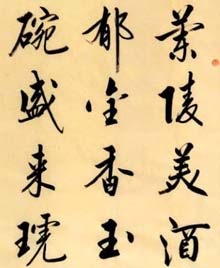 蘭陵美酒
郁金香玉
碗盛来琥